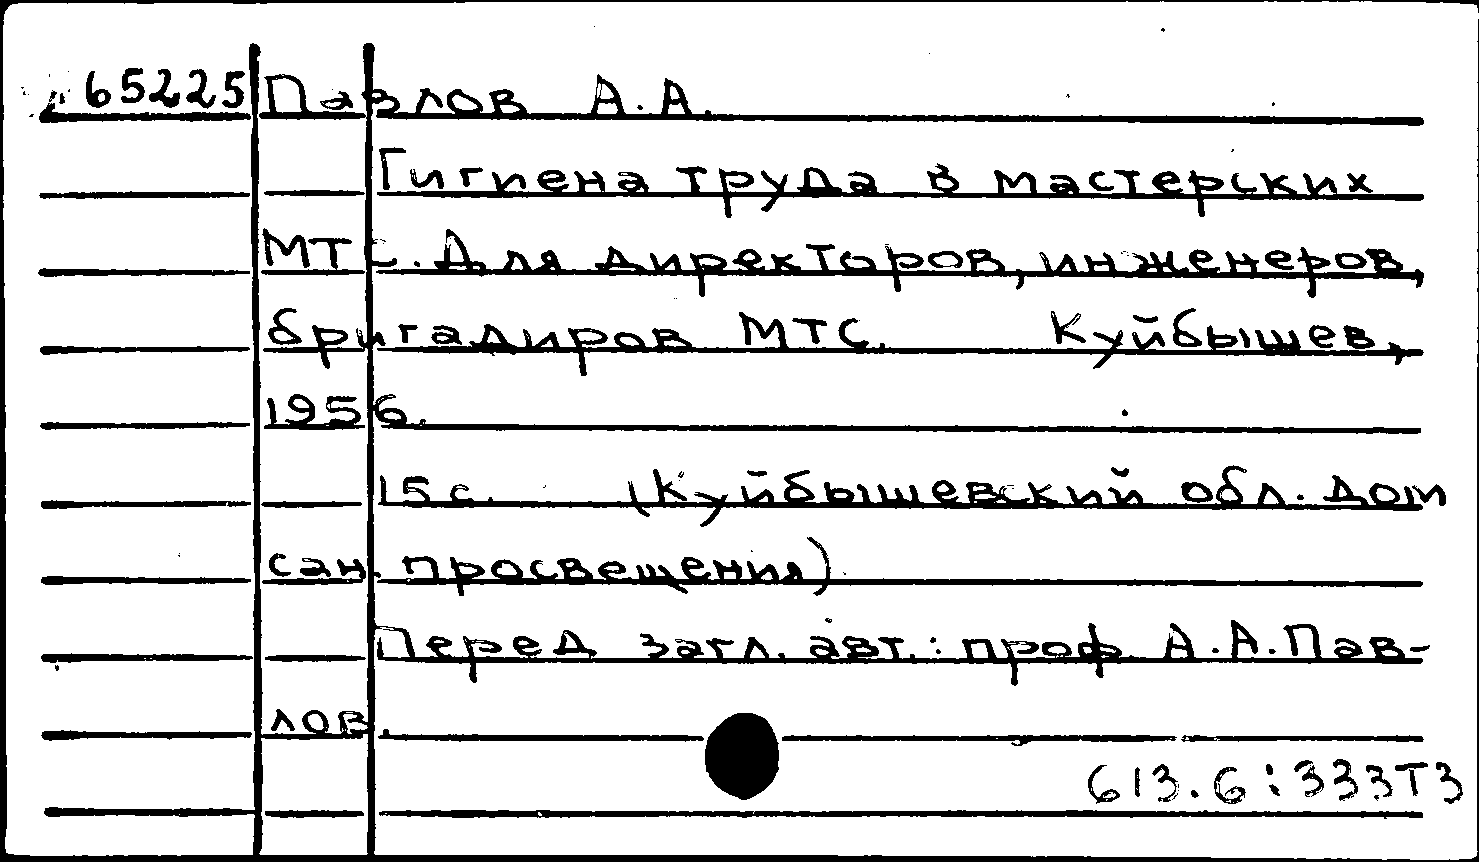 65225 Павлов А.А.
Гигиена труда в мастерских
МТС. Для директоров, инженеров,
бригадиров МТС. Куйбышев,
1956.
15 с. (Куйбышевский обл. дом
сан. просвещения)
Перед загл. авт.: проф. А.А. Пав-
лов.
613.6:333Т3